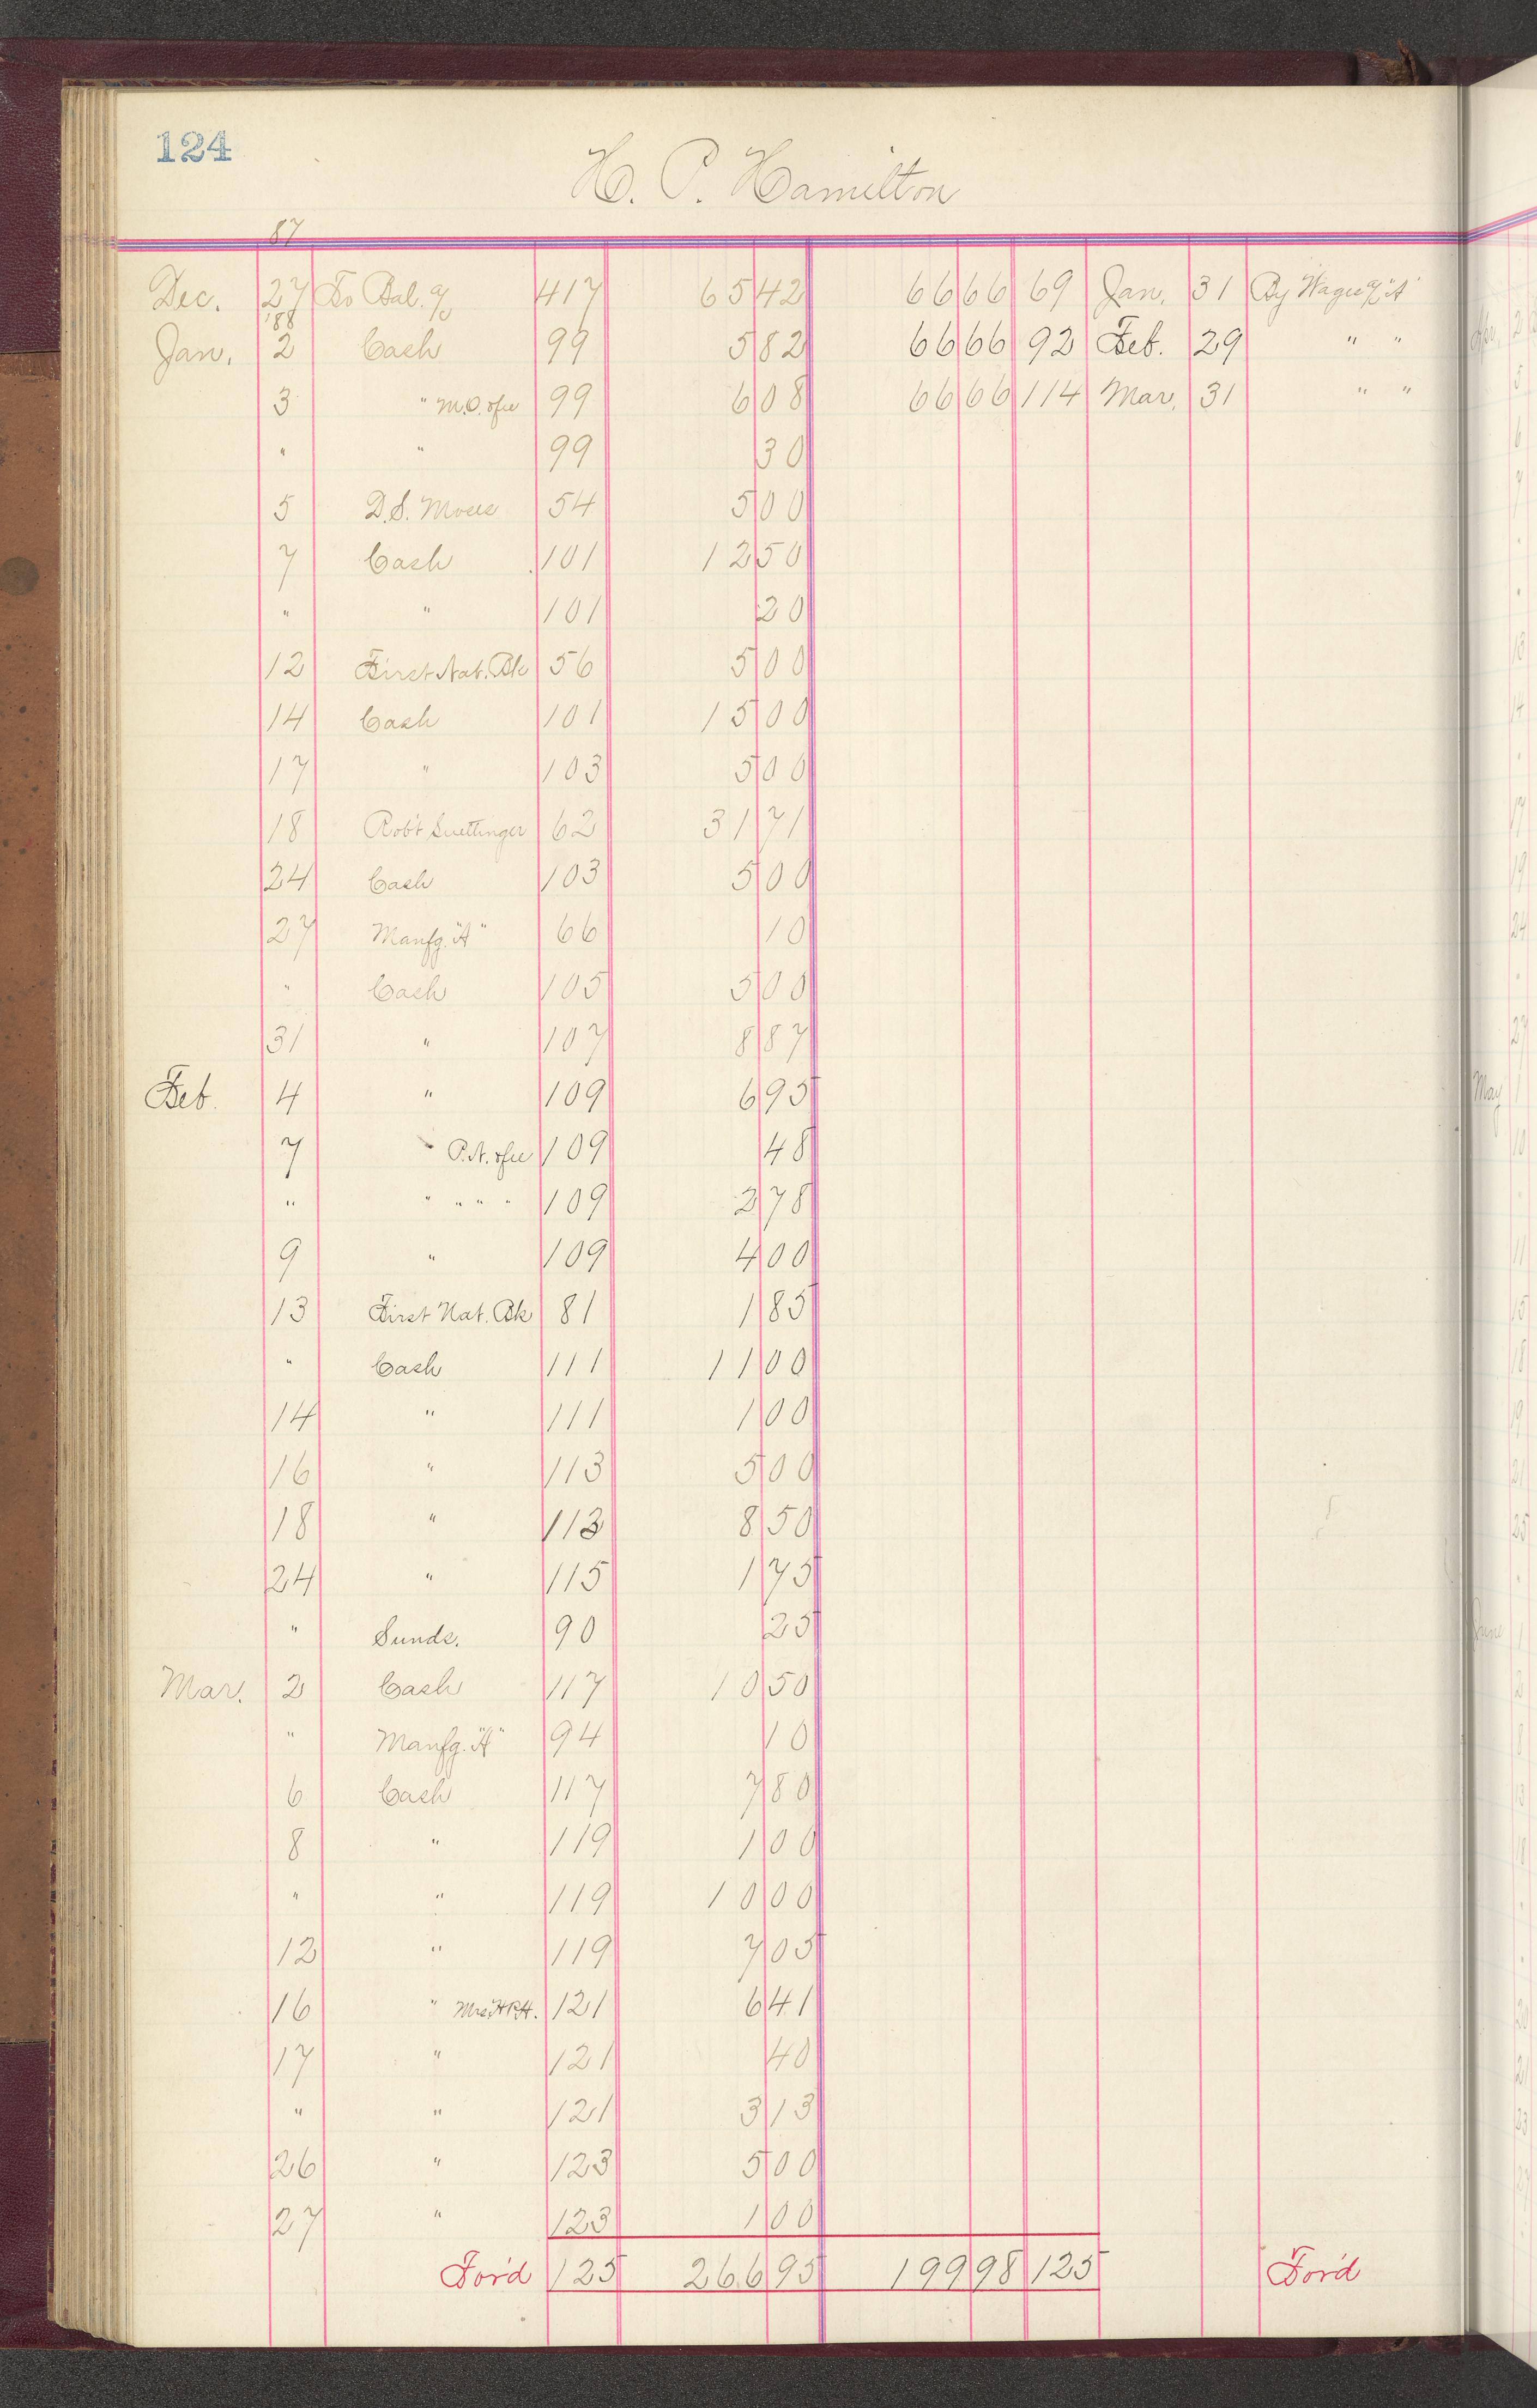 124
H. P. Hamilton
87
Dec. 27 To Bal. a/c 417 65 42 66 66 69 Jan. 31 By Wages a/c "A"
'88
Jan. 2 Cash 99 5 82 66 66 92 Feb. 29 " "
3 " M.O. ofu 99 6 08 66 66 114 Mar. 31 " "
" " 99 30
5 D.S. Moses 54 5 00
7 Cash 101 12 50
" " 101 20
12 First Nat. Bk 56 5 00
14 Cash 101 15 00
17 " 103 5 00
18 Rob't Suettinger 62 31 71
24 Cash 103 5 00
27 Manfg. "A" 66 10
" Cash 105 5 00
31 " 107 8 87
Feb. 4 " 109 6 95
7 " P.N. ofu 109 48
" " " " " 109 2 78
9 " 109 4 00
13 First Nat. Bk 81 1 85
" Cash 111 11 00
14 " 111 1 00
16 " 113 5 00
18 " 113 8 50
24 " 115 1 75
" Sunds. 90 25
Mar. 2 Cash 117 10 50
" Manfg. "A" 94 10
6 Cash 117 7 80
8 " 119 1 00
" " 119 10 00
12 " 119 7 05
16 " Mrs. H.P.H. 121 6 41
17 " 121 40
" " 121 3 13
26 " 123 5 00
27 " 123 1 00
For'd 125 266 95 199 98 125 For'd